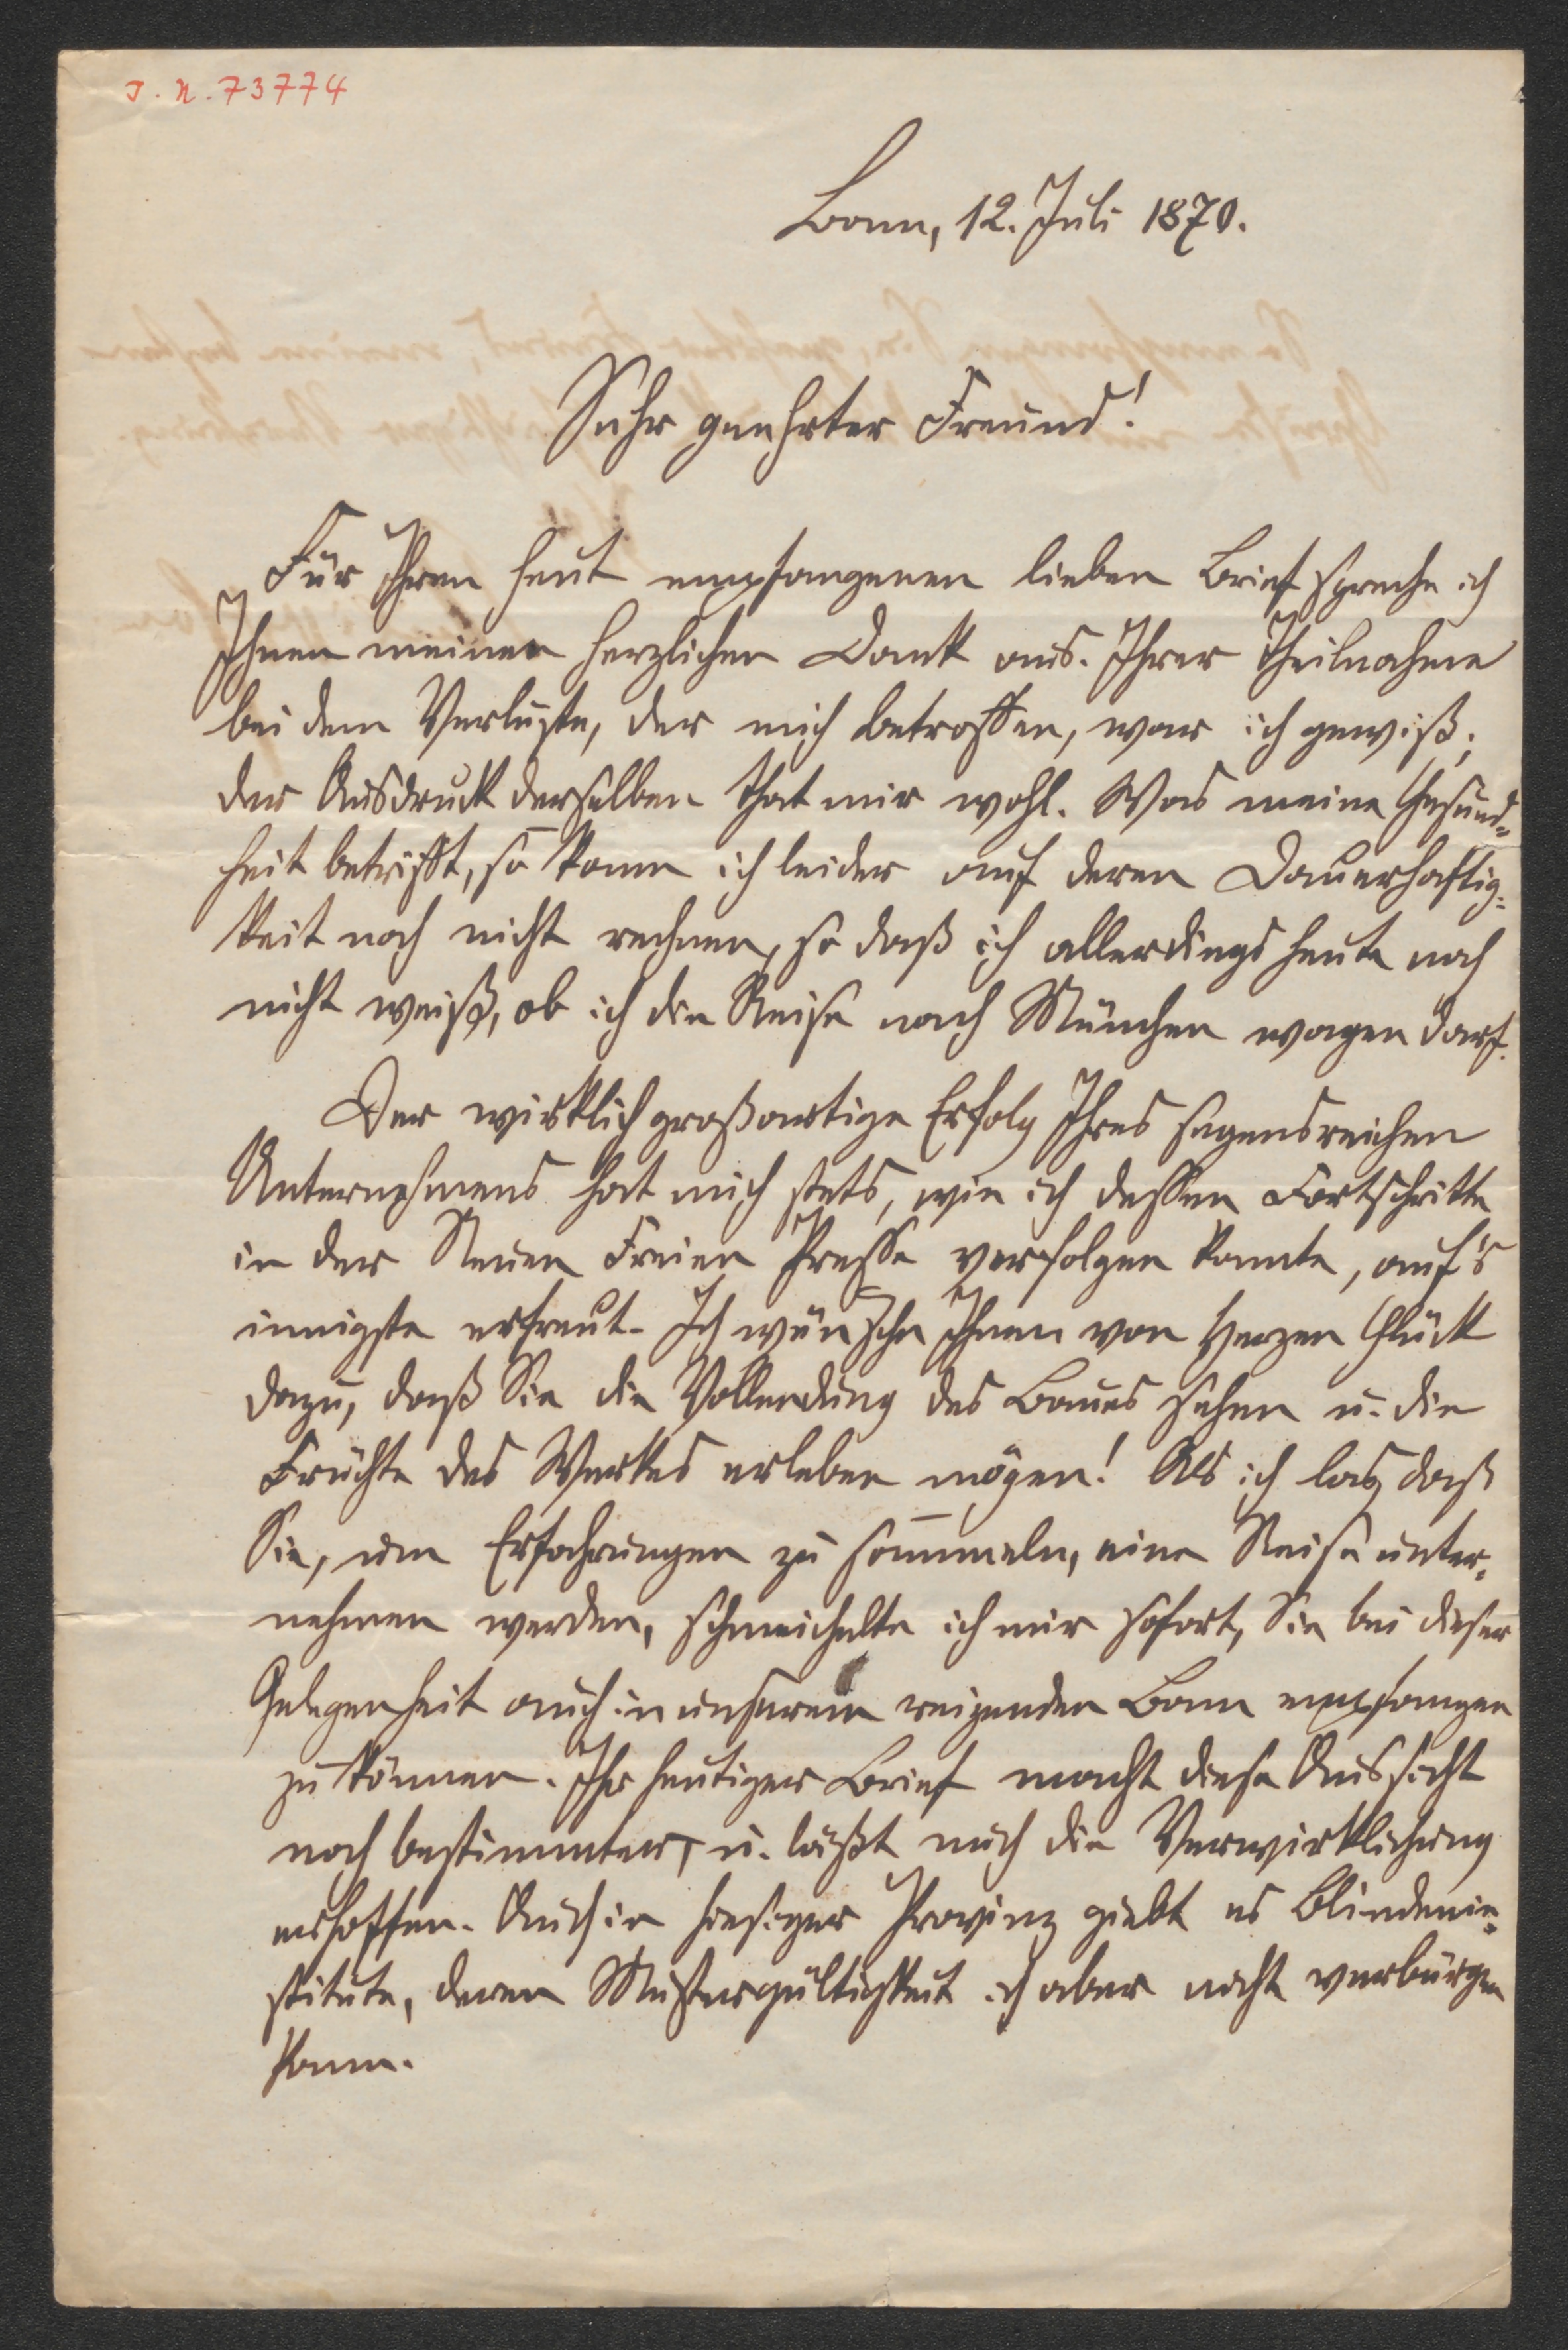 J. N. 73774
Bonn, 12. Juli 1870.
Sehr geehrter Freund!
Für Ihren heut empfangenen lieben Brief spreche ich
Ihnen meinen herzlichen Dank aus. Ihrer Theilnahme
bei dem Verluste, der mich betroffen, war ich gewiß;
der Ausdruck derselben that mir wohl. Was meine Gesund=
heit betrifft, so kann ich leider auf deren Dauerhaftig=
keit noch nicht rechnen, so daß ich allerdings heute noch
nicht weiß, ob ich die Reise nach München wagen darf.
Der wirklich großartige Erfolg Ihres segensreichen
Unternehmens hat mich stets, wie ich dessen Fortschritte
in der Neuen Freien Presse verfolgen konnte, auf's
innigste erfreut. Ich wünsche Ihnen von Herzen Glück
dazu, daß Sie die Vollendung des Baues sehen u. die
Früchte des Werkes erleben mögen! Als ich las, daß
Sie, um Erfahrungen zu sammeln, eine Reise unter=
nehmen werden, schmeichelte ich mir sofort, Sie bei dieser
Gelegenheit auch in unserem reizenden Bonn empfangen
zu können. Ihr heutiger Brief macht diese Aussicht
noch bestimmter, u. läßt mich die Verwirklichung
erhoffen. Auch in hiesiger Provinz giebt es Blindenin=
stitute, deren Mustergültigkeit ich aber nicht verbürgen
kann.